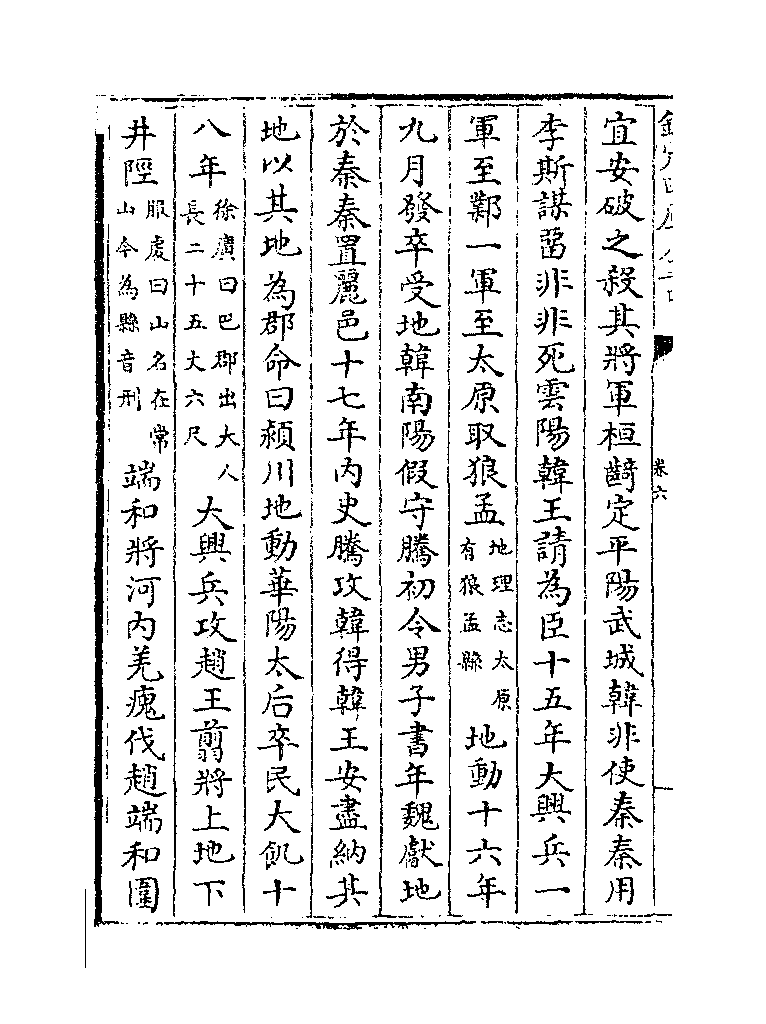 卷六
宜安破之殺其將軍桓齮定平陽武城韓非使秦秦用
李斯謀畱非非死雲陽韓王請為臣十五年大興兵一
軍至鄴一軍至太原取狼孟地理志太原有狼孟縣地動十六年
九月發卒受地韓南陽假守騰初令男子書年魏獻地
於秦秦置麗邑十七年内史騰攻韓得韓王安盡納其
地以其地為郡命曰潁川地動華陽太后卒民大飢十
八年徐廣曰巴郡出大人長二十五丈六尺大興兵攻趙王翦將上地下
井陘服虔曰山名在常山今為縣音刑端和將河内羌瘣伐趙端和圍